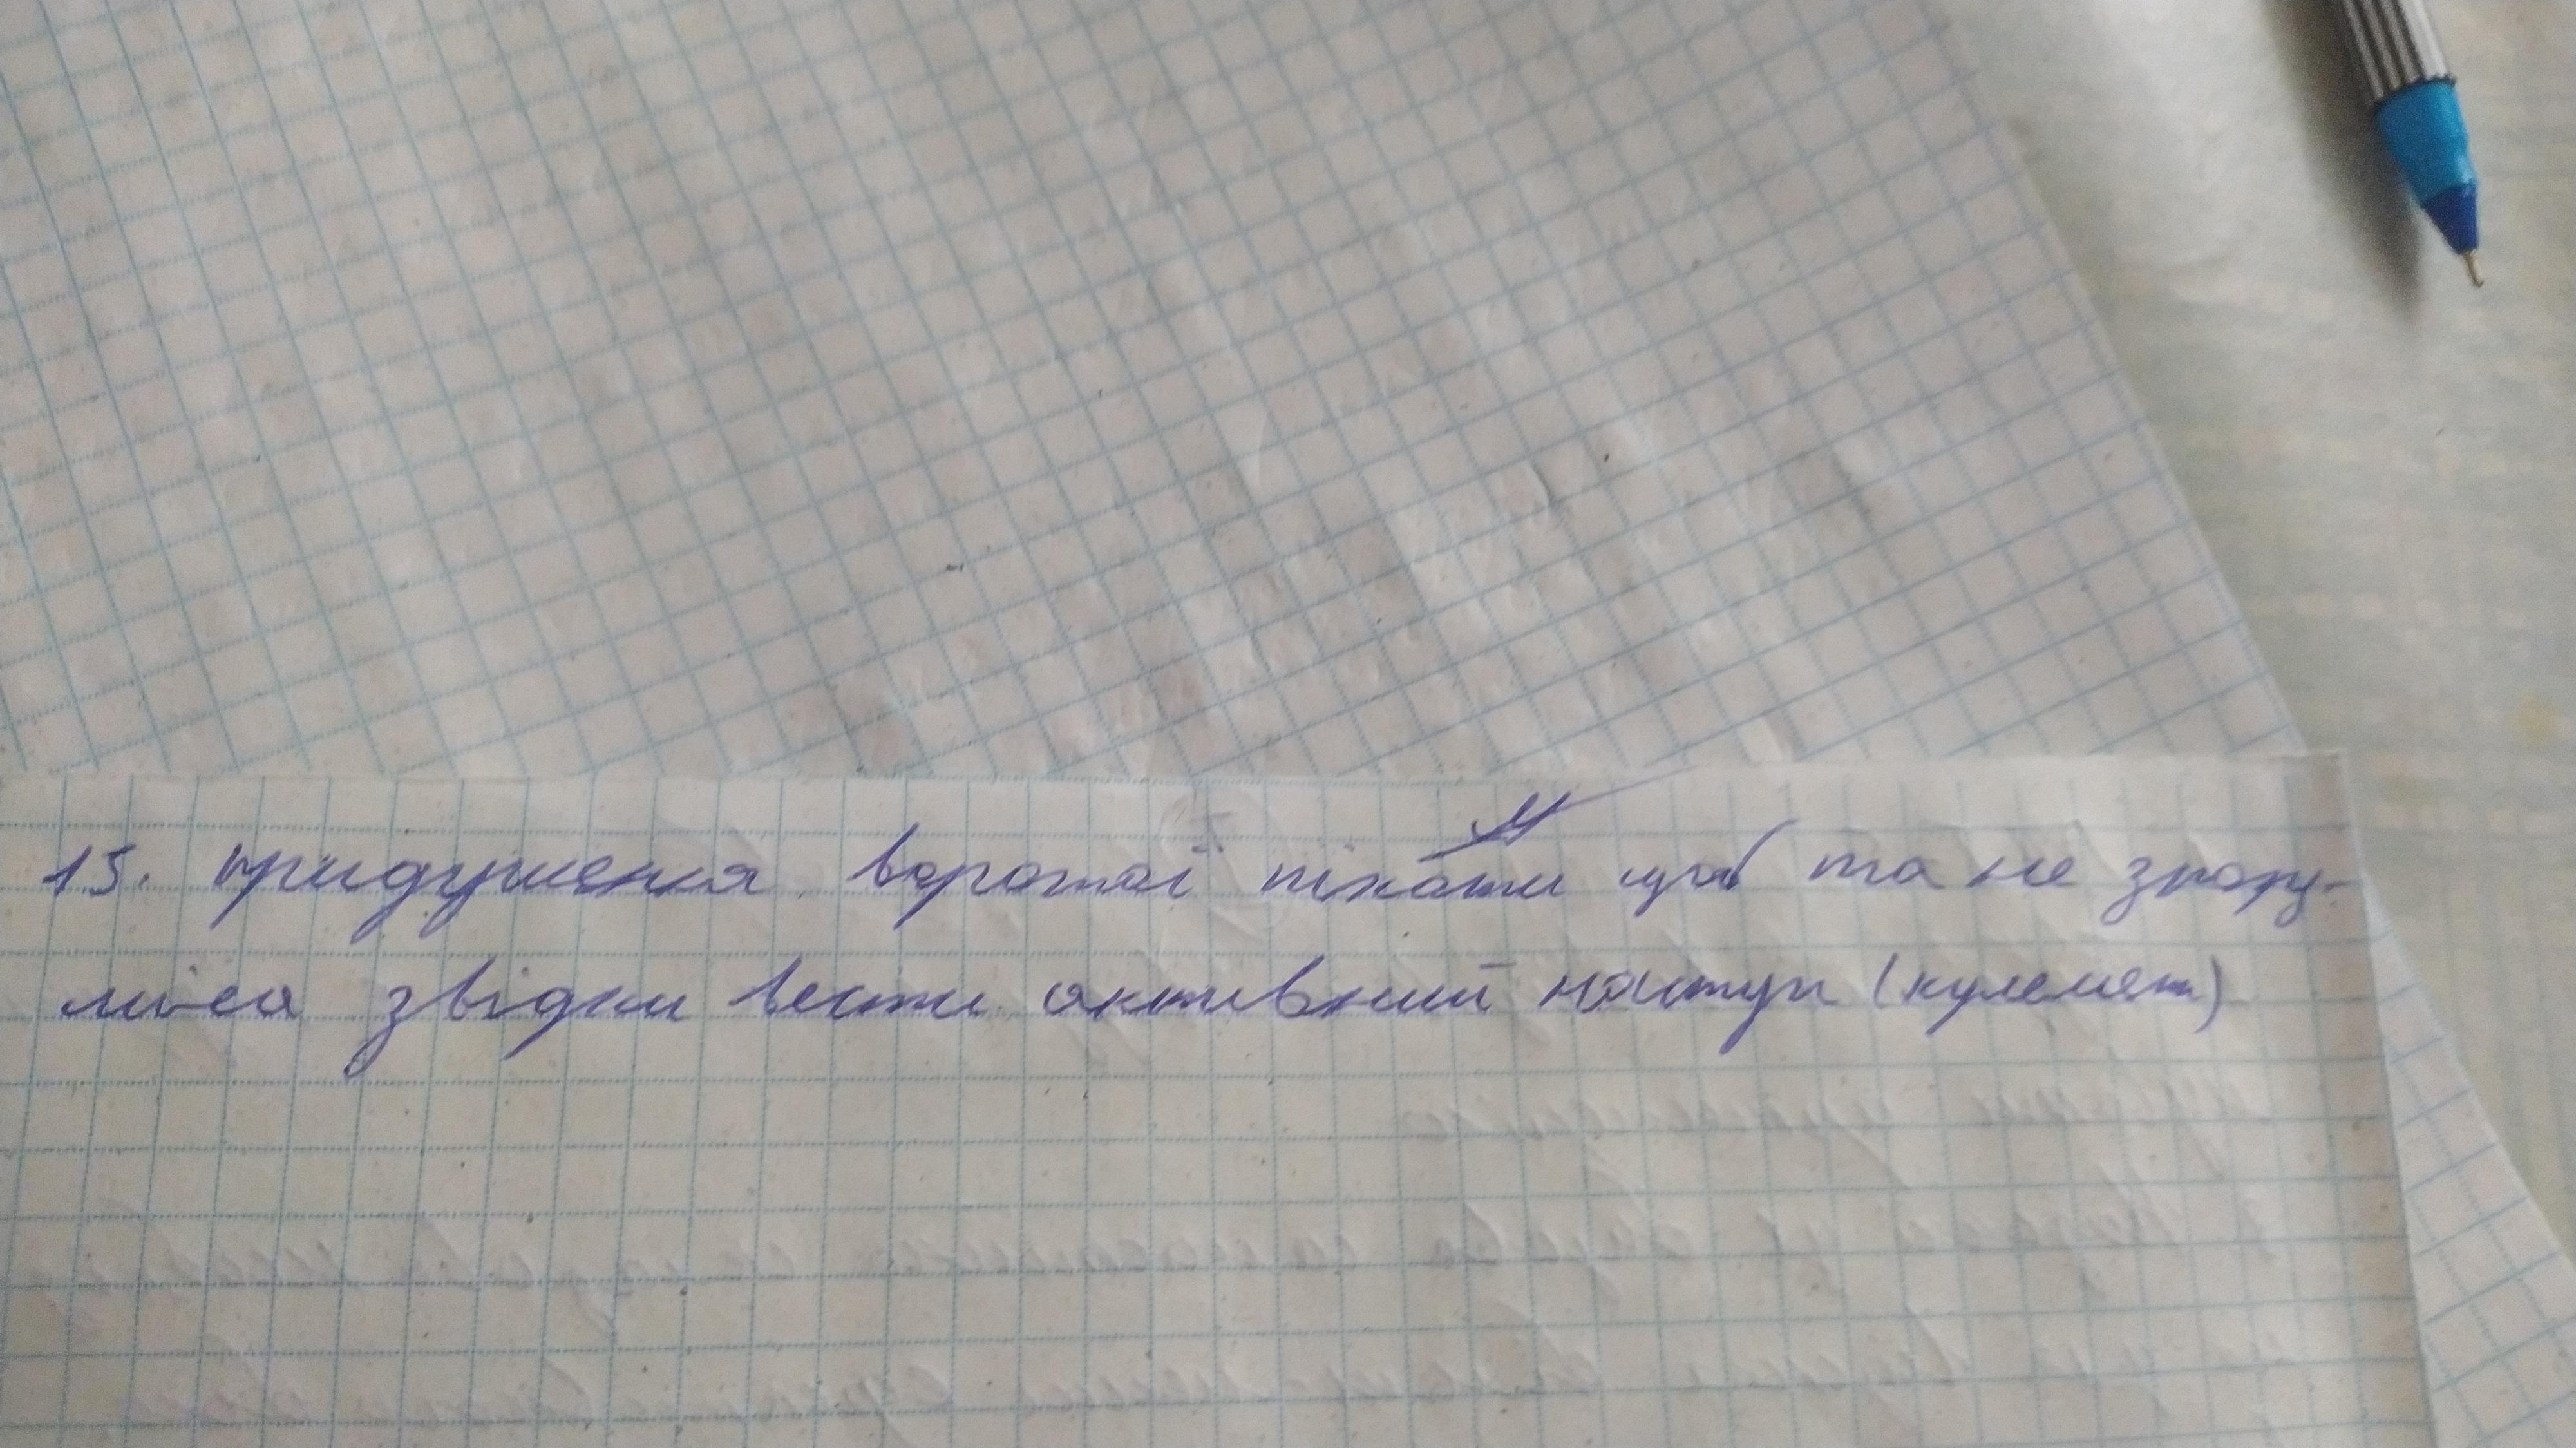 15. придушення ворожої піхоти щоб та не зпогу-
лися звідки вести активний наступ (кулемет)